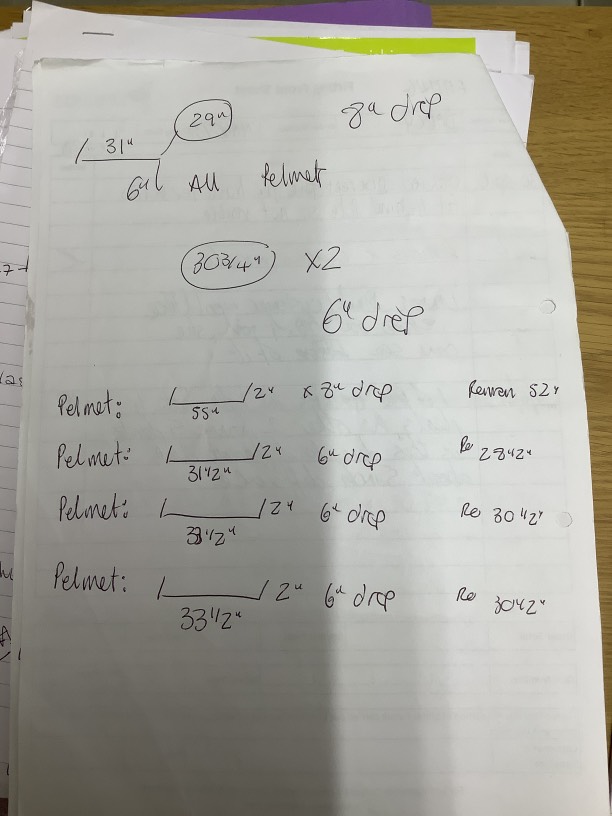 29" 8" drop
31"
6" All Pelmet
30 3/4" x2
6" drop
Pelmet: 55" 2" x 8" drop 52"
Pelmet: 31 1/2" 2" 6" drop Re 28 1/2"
Pelmet: 33 1/2" 2" 6" drop Re 30 1/2"
Pelmet: 33 1/2" 2" 6" drop Re 30 1/2"